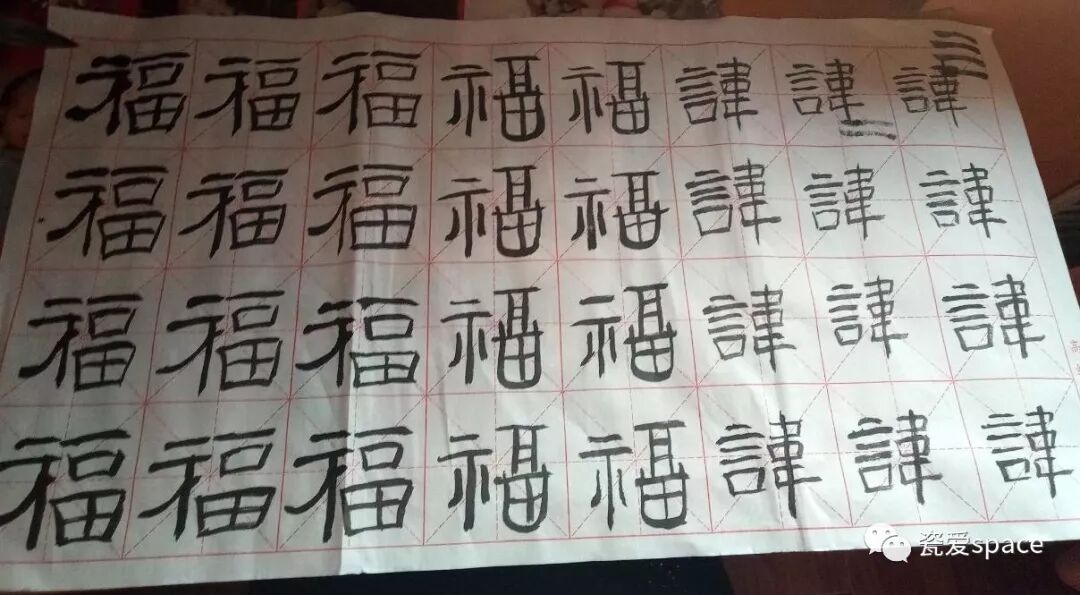 福福福福福諱諱諱
福福福福福諱諱諱
福福福福福諱諱諱
福福福福福諱諱諱
瓷爱space